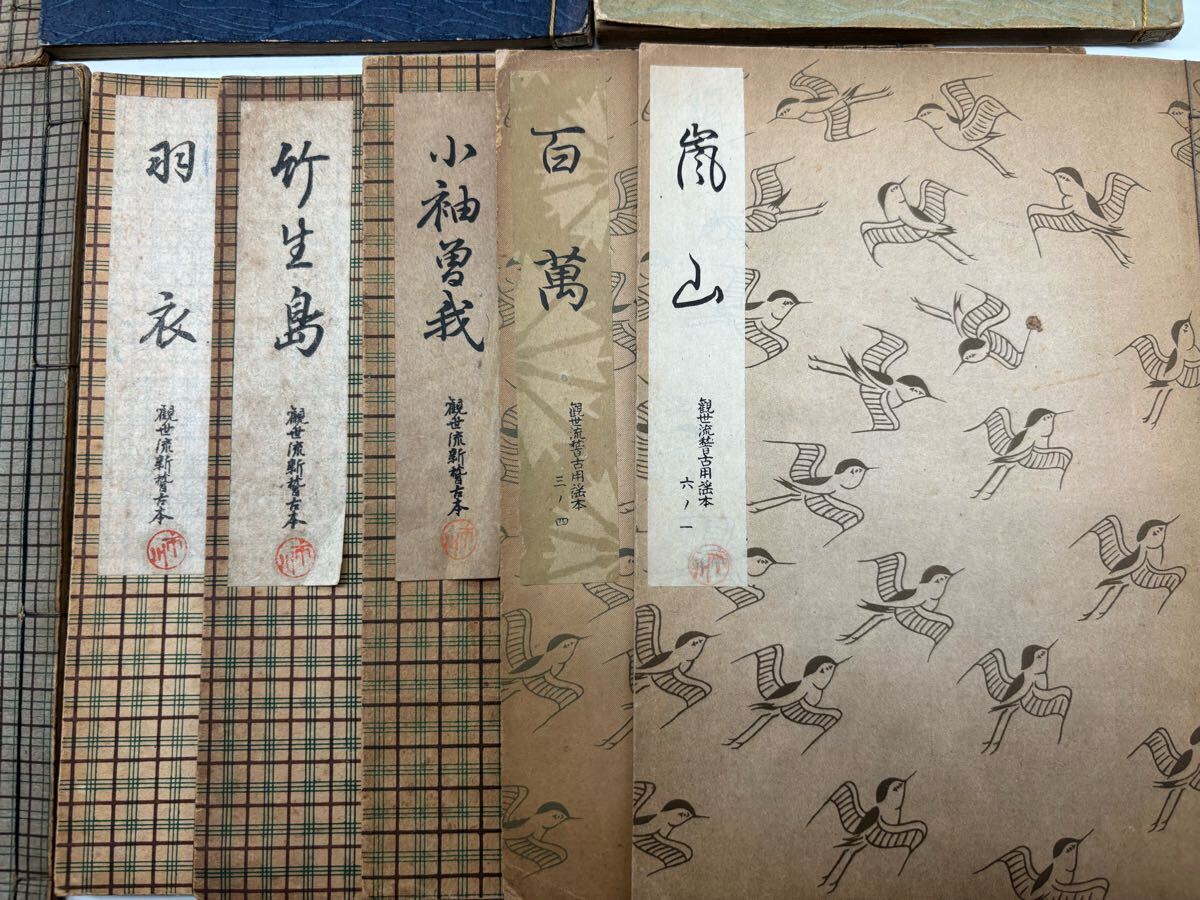 嵐山
觀世流稽古用謠本
六ノ一
百萬
觀世流稽古用謠本
三ノ四
小袖曽我
觀世流新稽古本
竹生島
觀世流新稽古本
市川
羽衣
觀世流新稽古本
市川